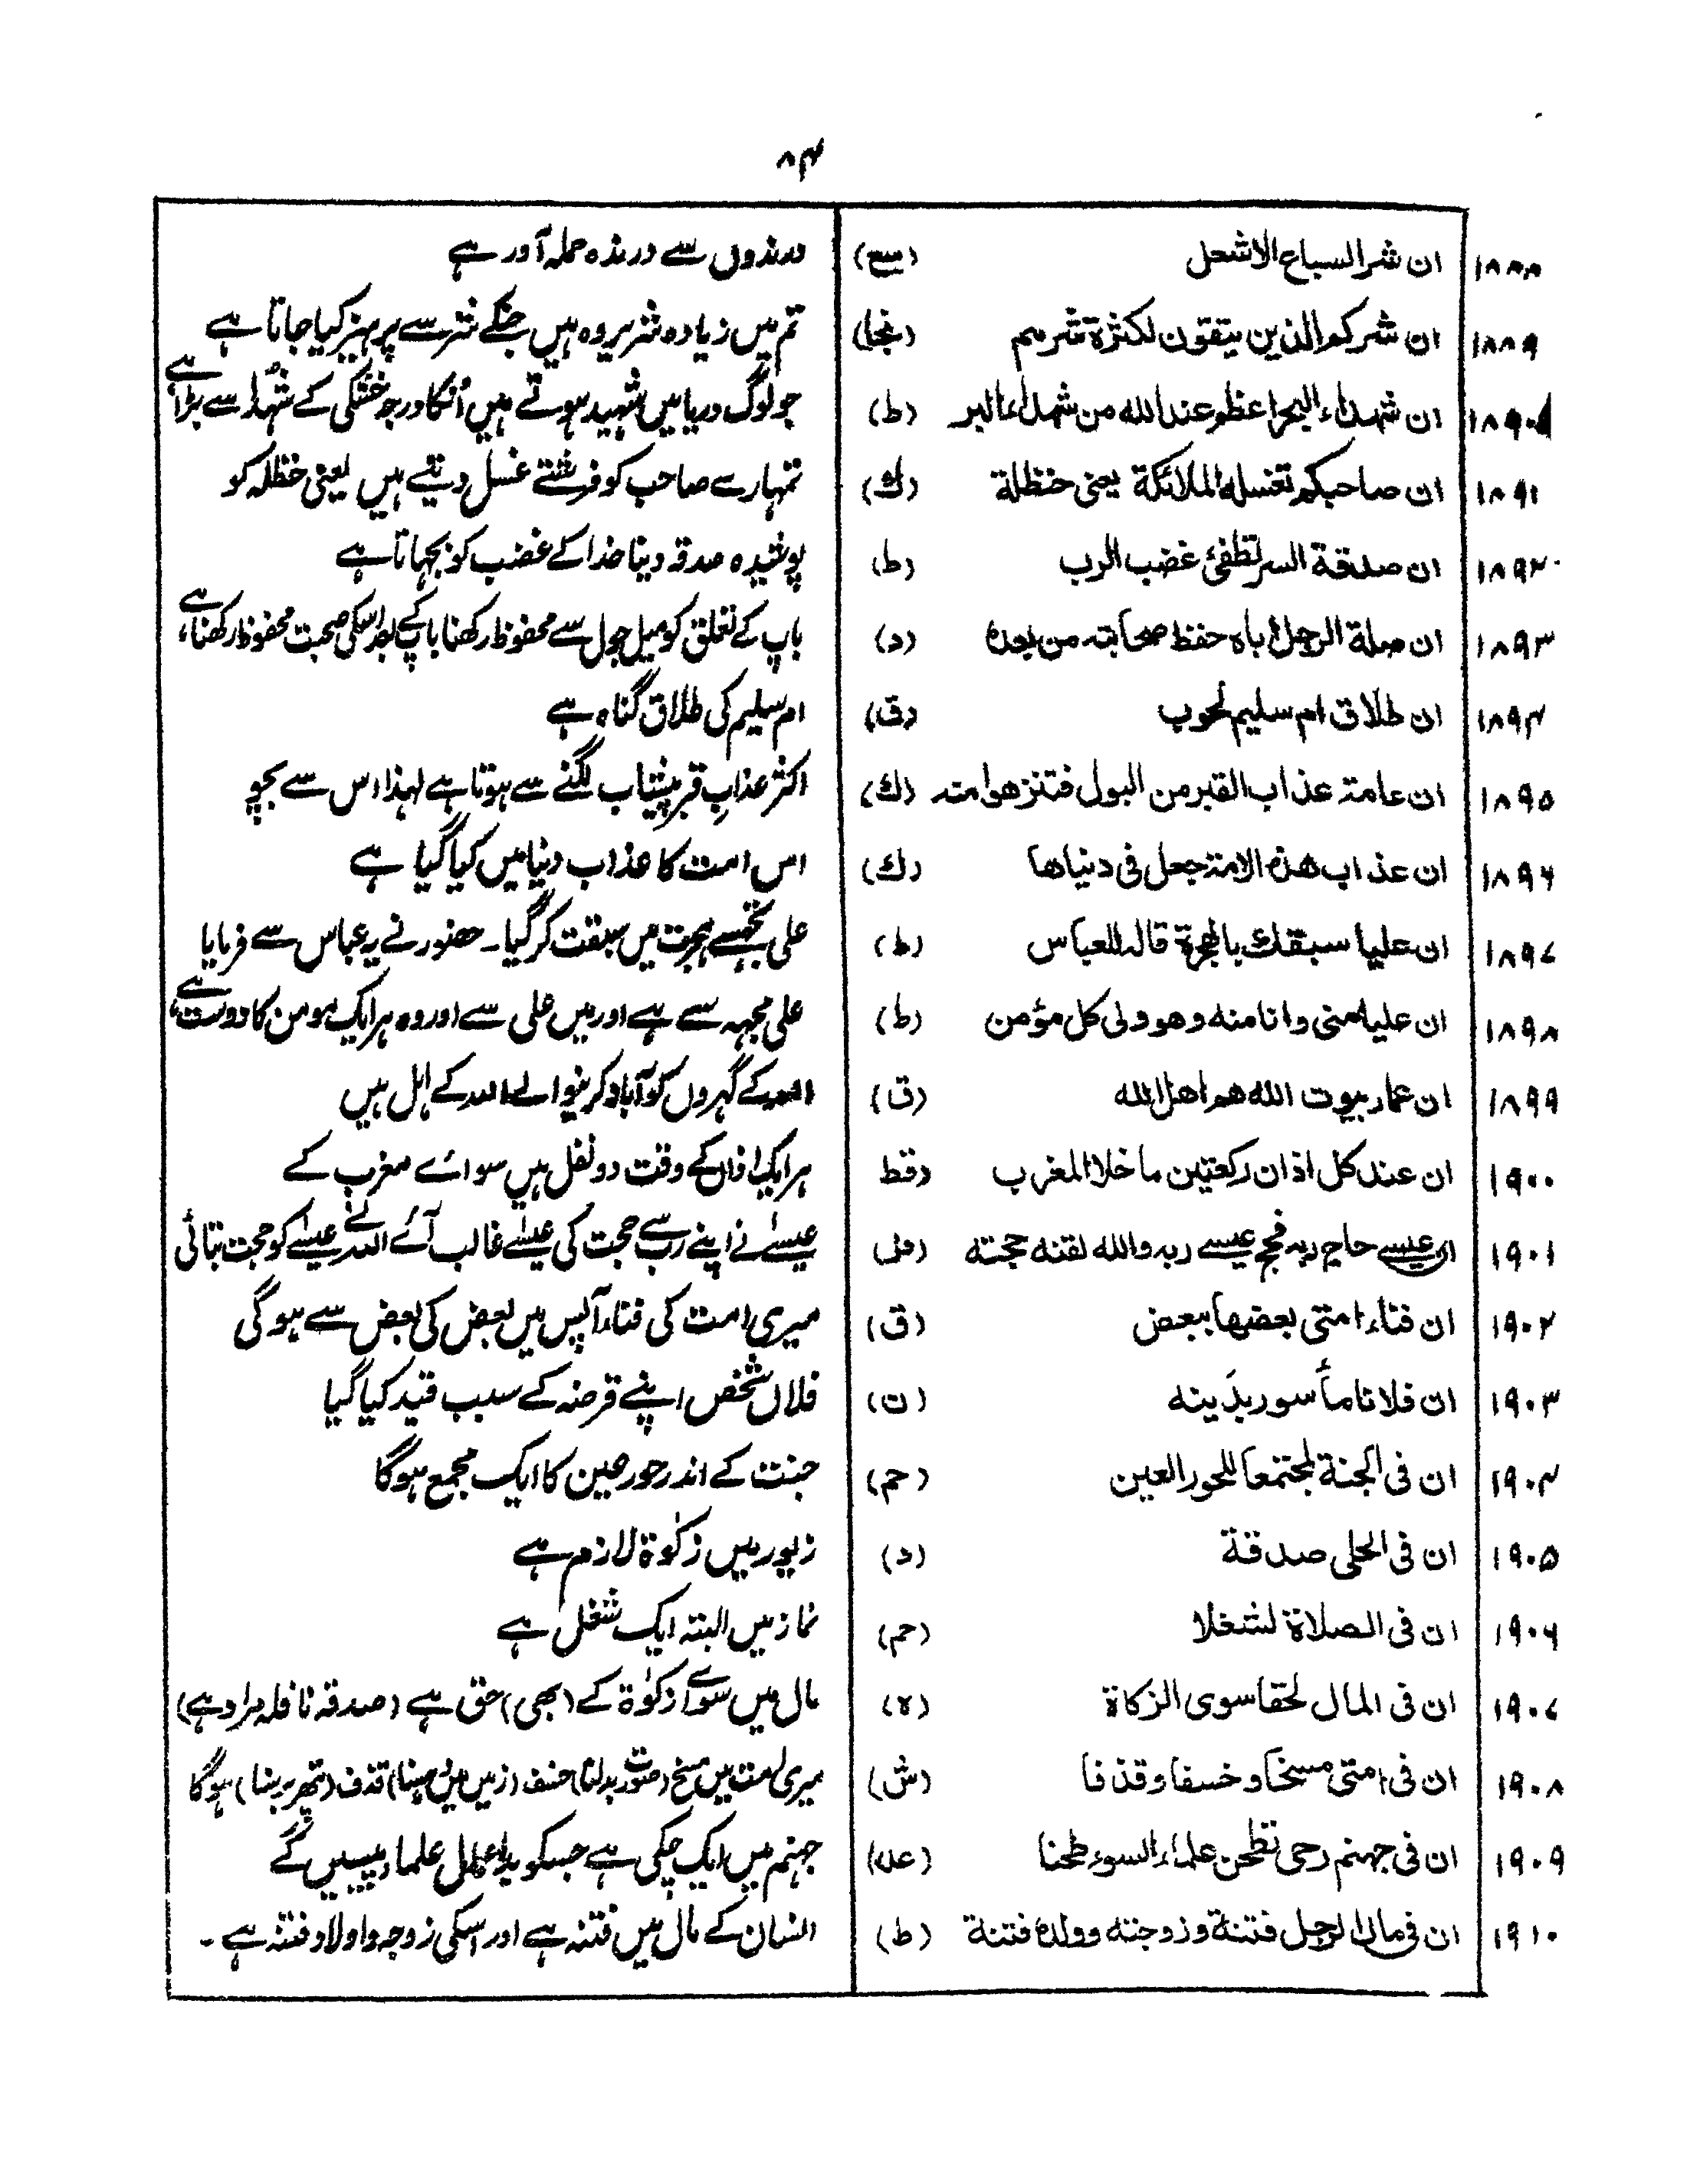 ۸۴
۱۸۸۸ ان شر السباع الاشعل (سع) درندوں سے درندہ حملہ آور ہے
۱۸۸۹ ان شركم الذين يتقون لكثرة شرهم (نجا) تم میں زیادہ شریر وہ ہیں جنکے شر سے پرہیز کیا جاتا ہے
۱۸۹۰ ان شهداء البحر اعظم عند الله من شهداء البر (ط) جو لوگ دریا میں شہید ہوتے ہیں اُنکا درجہ خشکی کے شہدا سے بڑا ہے
۱۸۹۱ ان صاحبكم تغسله الملائكة يعنى حنظلة (ك) تمہارے صاحب کو فرشتے غسل دیتے ہیں یعنی حنظلہ کو
۱۸۹۲ ان صدقة السر تطفئ غضب الرب (ط) پوشیدہ صدقہ دینا خدا کے غضب کو بجہاتا ہے
۱۸۹۳ ان صلة الرجل اباه حفظ صحابته من بعده (د) باپ کے تعلق کو میل جول سے محفوظ رکھنا باپ کے بعد اسکی صحبت محفوظ رکھنا ہے
۱۸۹۴ ان طلاق ام سليم لحوب (ق) ام سلیم کی طلاق گناہ ہے
۱۸۹۵ ان عامة عذاب القبر من البول فتنزهوا منه (ك) اکثر عذابِ قبر پیشاب لگنے سے ہوتا ہے لہذا اس سے بچو
۱۸۹۶ ان عذاب هذه الامة جعل فى دنياها (ك) اس امت کا عذاب دنیا میں کیا گیا ہے
۱۸۹۷ ان عليا سبقك بالهجرة قاله للعباس (ط) علی تجھسے ہجرت میں سبقت کر گیا۔ حضور نے یہ عباس سے فرمایا
۱۸۹۸ ان عليا منى وانا منه وهو ولى كل مؤمن (ط) علی مجہہ سے ہے اور میں علی سے اور وہ ہر ایک مومن کا دوست ہے
۱۸۹۹ ان عمار بيوت الله هم اهل الله (ق) اللہ کے گہروں کو آباد کرنیوالے اللہ کے اہل ہیں
۱۹۰۰ ان عند كل اذان ركعتين ما خلا المغرب (قط ہر ایک اذان کے وقت دو نفل ہیں سوائے مغرب کے
۱۹۰۱ ان عيسى حاج ربه فحج عيسى ربه والله لقنه حجته عیسٰے نے اپنے رب سے حجت کی عیسٰے غالب آئے اللہ نے عیسٰے کو حجت بتائی
۱۹۰۲ ان فناء امتى بعضها ببعض (ق) میری امت کی فناء آپس میں بعض کی بعض سے ہوگی
۱۹۰۳ ان فلانا مأسور بدَينه (ن) فلاں شخص اپنے قرضہ کے سبب قید کیا گیا
۱۹۰۴ ان فى الجنة لمجتمعا للحور العين (حم) جنت کے اندر حور عین کا ایک مجمع ہوگا
۱۹۰۵ ان فى الحلى صدقة (د) زیور میں زکوٰة لازم ہے
۱۹۰۶ ان فى الصلاة لشغلا (حم) نماز میں البتہ ایک شغل ہے
۱۹۰۷ ان فى المال لحقا سوى الزكاة (ه) مال میں سوائے زکوٰة کے (بھی) حق ہے (صدقہ نافلہ مراد ہے)
۱۹۰۸ ان فى امتى مسخا وخسفا وقذفا (ش) میری امت میں مسخ (صورت بدلنا) خسف (زمیں میں دہنسنا) قذف (پتھر برسنا) ہوگا
۱۹۰۹ ان فى جهنم رحى تطحن علماء السوء طحنا (عد) جہنم میں ایک چکی ہے جسکو بداعمال علماء پیسیں گے
۱۹۱۰ ان فى مال الرجل فتنة وزوجته وولده فتنة (ط) انسان کے مال میں فتنہ ہے اور اسکی زوجہ و اولاد فتنہ ہے۔